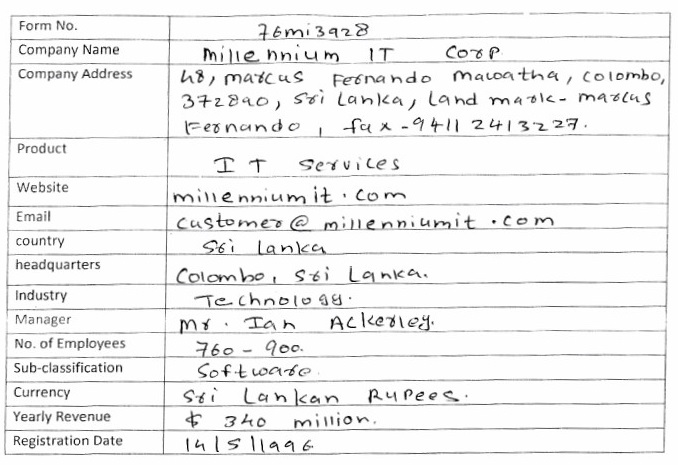 Form No. 76mi3928
Company Name Millennium IT Corp
Company Address 48, marcus Fernando mawatha, colombo,
372890, Sri Lanka, Land mark- marcus
Fernando, fax -9411 2413227.
Product IT Services
Website millenniumit.com
Email customer@millenniumit.com
country Sri Lanka
headquarters Colombo, Sri Lanka.
Industry Technology.
Manager Mr. Ian Ackerley.
No. of Employees 760 - 900.
Sub-classification Software.
Currency Sri Lankan Rupees.
Yearly Revenue $ 340 million.
Registration Date 14/5/1996